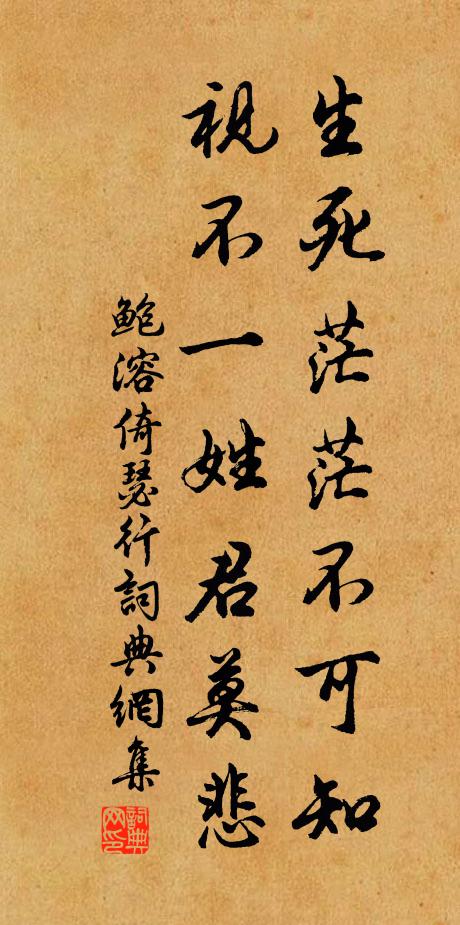 生死茫茫不可知
視不一姓君莫悲
鮑溶倚瑟行詞典網集
詞典网印